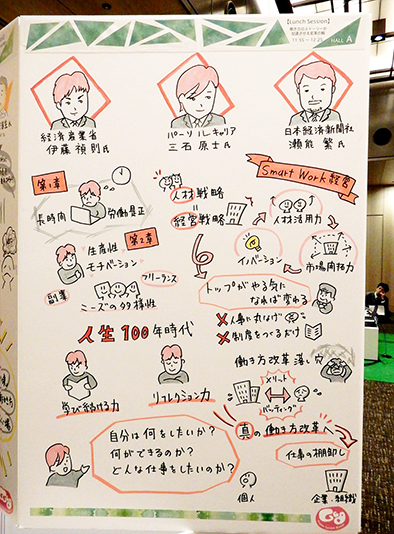 【Lunch Session】
11:45～12:25
HALL A
経済産業省
伊藤 禎則氏
パーソルキャリア
三石 原士氏
日本経済新聞社
瀬能 繁氏
第1章
長時間 労働是正
人材戦略
経営戦略
Smart Work経営
人材活用力
イノベーション
市場開拓力
第2章
生産性
モチベーション
副業
フリーランス
ニーズの多様性
トップがやる気に
なれば変わる
×人事に丸なげ
×制度をつくるだけ
人生100年時代
学び続ける力
リフレクション力
働き方改革 落し穴
メリット
バッティング
自分は何をしたいか？
何ができるのか？
どんな仕事をしたいのか？
真の働き方改革へ
仕事の棚卸し
個人
企業・組織